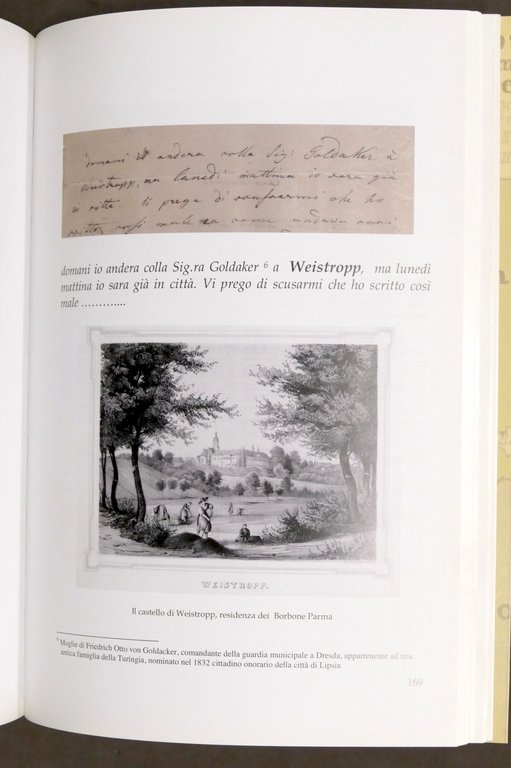 domani io andera colla Sig: Goldaker à
Weistropp, ma lunedì mattina io sara già
in citta. Vi prego di scusarmi che ho
scritto così male ma come andava
domani io andera colla Sig.ra Goldaker 6 a Weistropp, ma lunedì
mattina io sara già in città. Vi prego di scusarmi che ho scritto così
male ………....
WEISTROPP.
Il castello di Weistropp, residenza dei Borbone Parma
6 Moglie di Friedrich Otto von Goldacker, comandante della guardia municipale a Dresda, appartenente ad una
antica famiglia della Turingia, nominato nel 1832 cittadino onorario della città di Lipsia
169